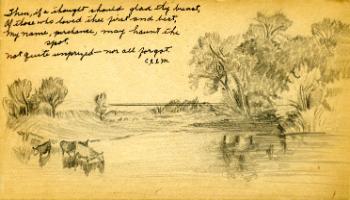 Then, if a thought should glad thy breast,
Of those who loved thee first and best,
My name, perchance, may haunt the
spot,
Not quite unprized—nor all forgot.